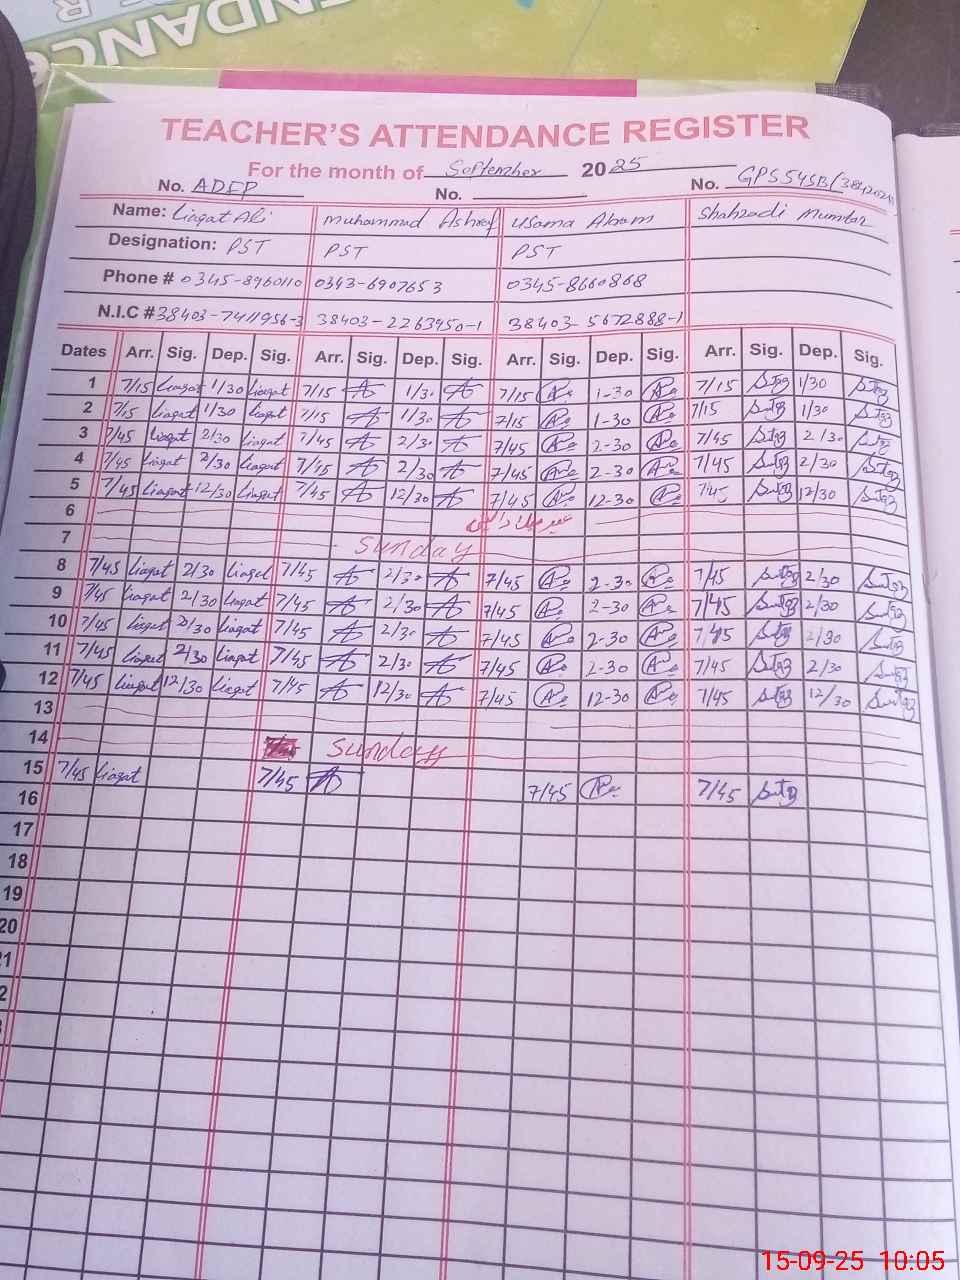 TEACHER'S ATTENDANCE REGISTER
For the month of September 2025
No. ADEP No. No. GPS 54SB
Name: Liaqat Ali Muhammad Ashraf Usama Akram Shahzadi Mumtaz
Designation: PST PST PST
Phone # 0345-8960110 0343-6907653 0345-8660868
N.I.C # 38403-7411956-3 38403-2263950-1 38403-5672888-1
Dates Arr. Sig. Dep. Sig. Arr. Sig. Dep. Sig. Arr. Sig. Dep. Sig. Arr. Sig. Dep. Sig.
1 7/15 Liaqat 1/30 Liaqat 7/15 1/30 7/15 1-30 7/15 1/30
2 7/15 Liaqat 1/30 Liaqat 7/15 1/30 7/15 1-30 7/15 1/30
3 7/45 Liaqat 2/30 Liaqat 7/45 2/30 7/45 2-30 7/45 2/30
4 7/45 Liaqat 2/30 Liaqat 7/45 2/30 7/45 2-30 7/45 2/30
5 7/45 Liaqat 12/30 Liaqat 7/45 12/30 7/45 12-30 7/45 12/30
6 عید میلاد النبی
7 Sunday
8 7/45 Liaqat 2/30 Liaqat 7/45 2/30 7/45 2-30 7/45 2/30
9 7/45 Liaqat 2/30 Liaqat 7/45 2/30 7/45 2-30 7/45 2/30
10 7/45 Liaqat 2/30 Liaqat 7/45 2/30 7/45 2-30 7/45 2/30
11 7/45 Liaqat 2/30 Liaqat 7/45 2/30 7/45 2-30 7/45 2/30
12 7/45 Liaqat 12/30 Liaqat 7/45 12/30 7/45 12-30 7/45 12/30
13
14 Sunday
15 7/45 Liaqat 7/45 7/45 7/45
16
17
18
19
20
21
15-09-25 10:05